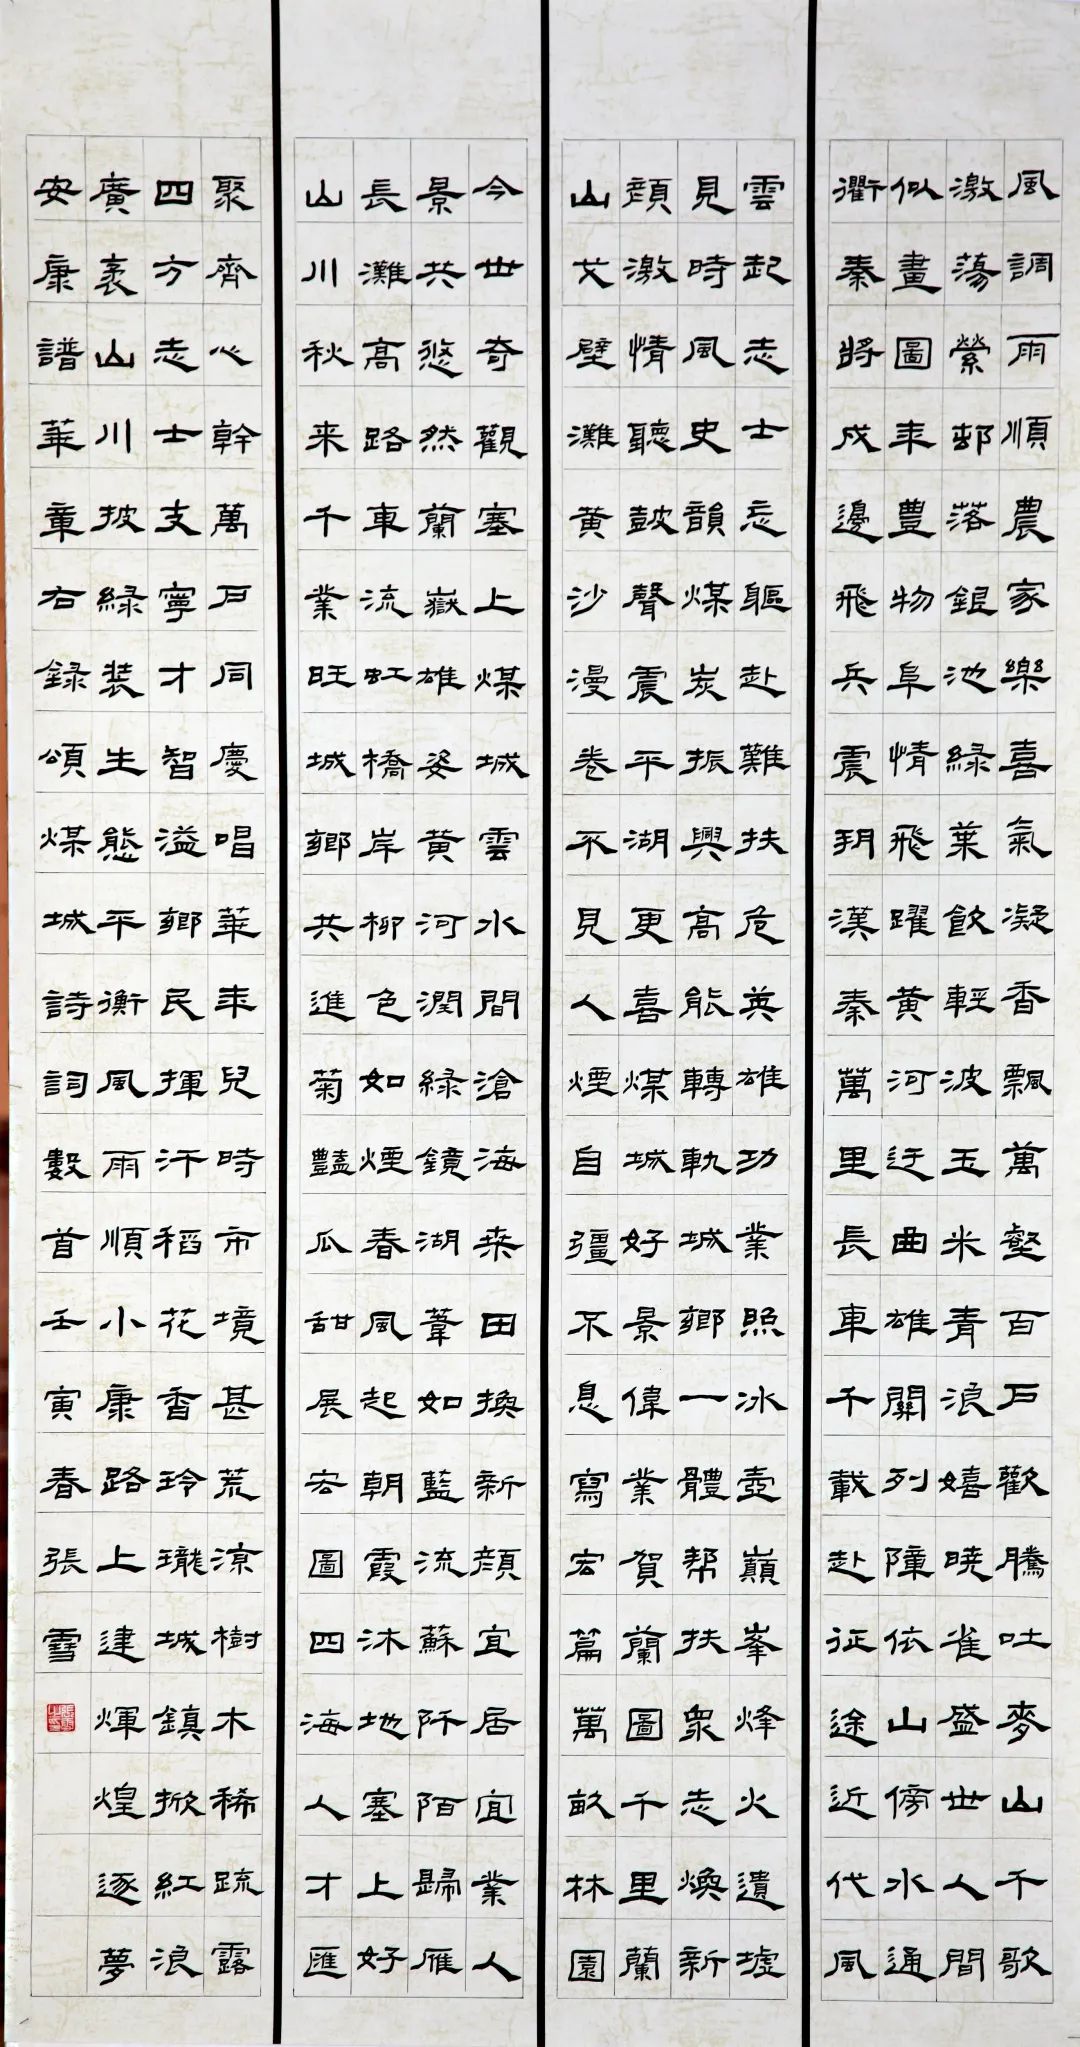 風調雨順農家樂喜氣凝香飄萬壑百戶歡騰吐麥山千歌
激蕩縈邨落銀池綠葉飲輕波玉米青浪嬉曉雀盛世人間
似畫圖年豊物阜情飛躍黄河迂曲雄關列障依山傍水通
衢秦將戍邊飛兵震朔漢秦萬里長車千載赴征途近代風
雲起志士忘軀赴難扶危英雄功業照冰壺巔峯烽火遺墟
見時風史韻煤炭振興高能轉軌城鄉一體幇扶衆志煥新
顔激情聽鼓聲震平湖更喜煤城好景偉業賀蘭圖千里蘭
山戈壁灘黄沙漫卷不見人煙自彊不息寫宏篇萬畝林園
今世奇觀塞上煤城雲水間滄海桒田換新顔宜居宜業人
景共悠然蘭嶽雄姿黄河潤綠鏡湖葦如藍流蘇阡陌歸雁
長灘高路車流虹橋岸柳色如煙春風起朝霞沐地塞上好
山川秋来千業旺城鄉共進菊豔瓜甜展宏圖四海人才匯
聚齊心幹萬戶同慶唱華年兒時市境甚荒涼樹木稀疏露
四方志士支寧才智溢鄉民揮汗稻花香玲瓏城鎮掀紅浪
廣袤山川披綠装生態平衡風雨順小康路上建輝煌逐夢
安康譜華章右録頌煤城詩詞數首壬寅春張雪